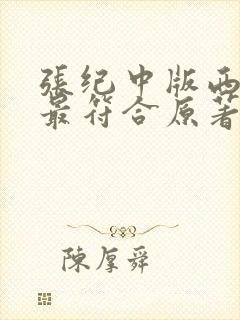 張纪中版西
最符合原著
陳厚舜